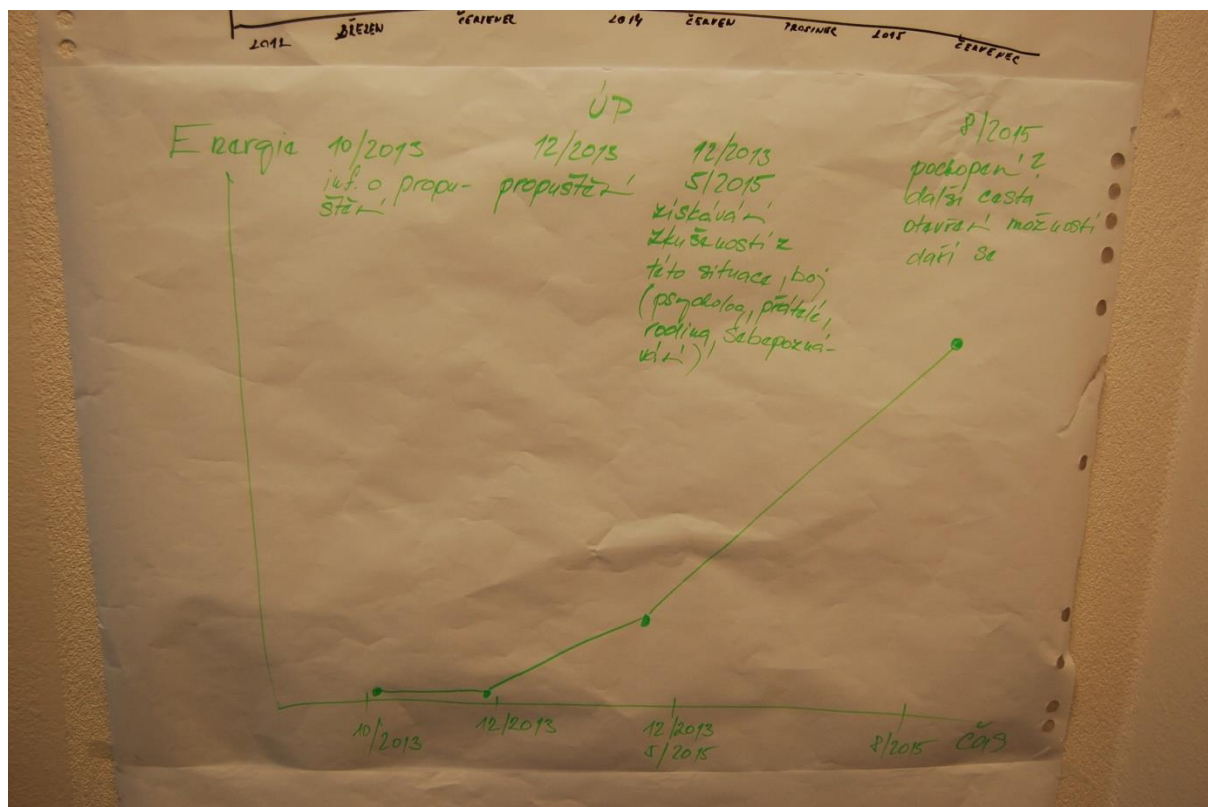 2012 BŘEZEN ČERVENEC 2014 ČERVEN PROSINEC 2015 ČERVENEC
ÚP
Energie
10/2013
inf. o propu-
štění
12/2013
propuštění
12/2013
5/2015
získávání
zkušeností z
této situace, boj
(psycholog, přátelé,
rodina, sebepozná-
vání)
8/2015
pochopení?
další cesta
otevření možností
daří se
10/2013
12/2013
12/2013
5/2015
8/2015
čas